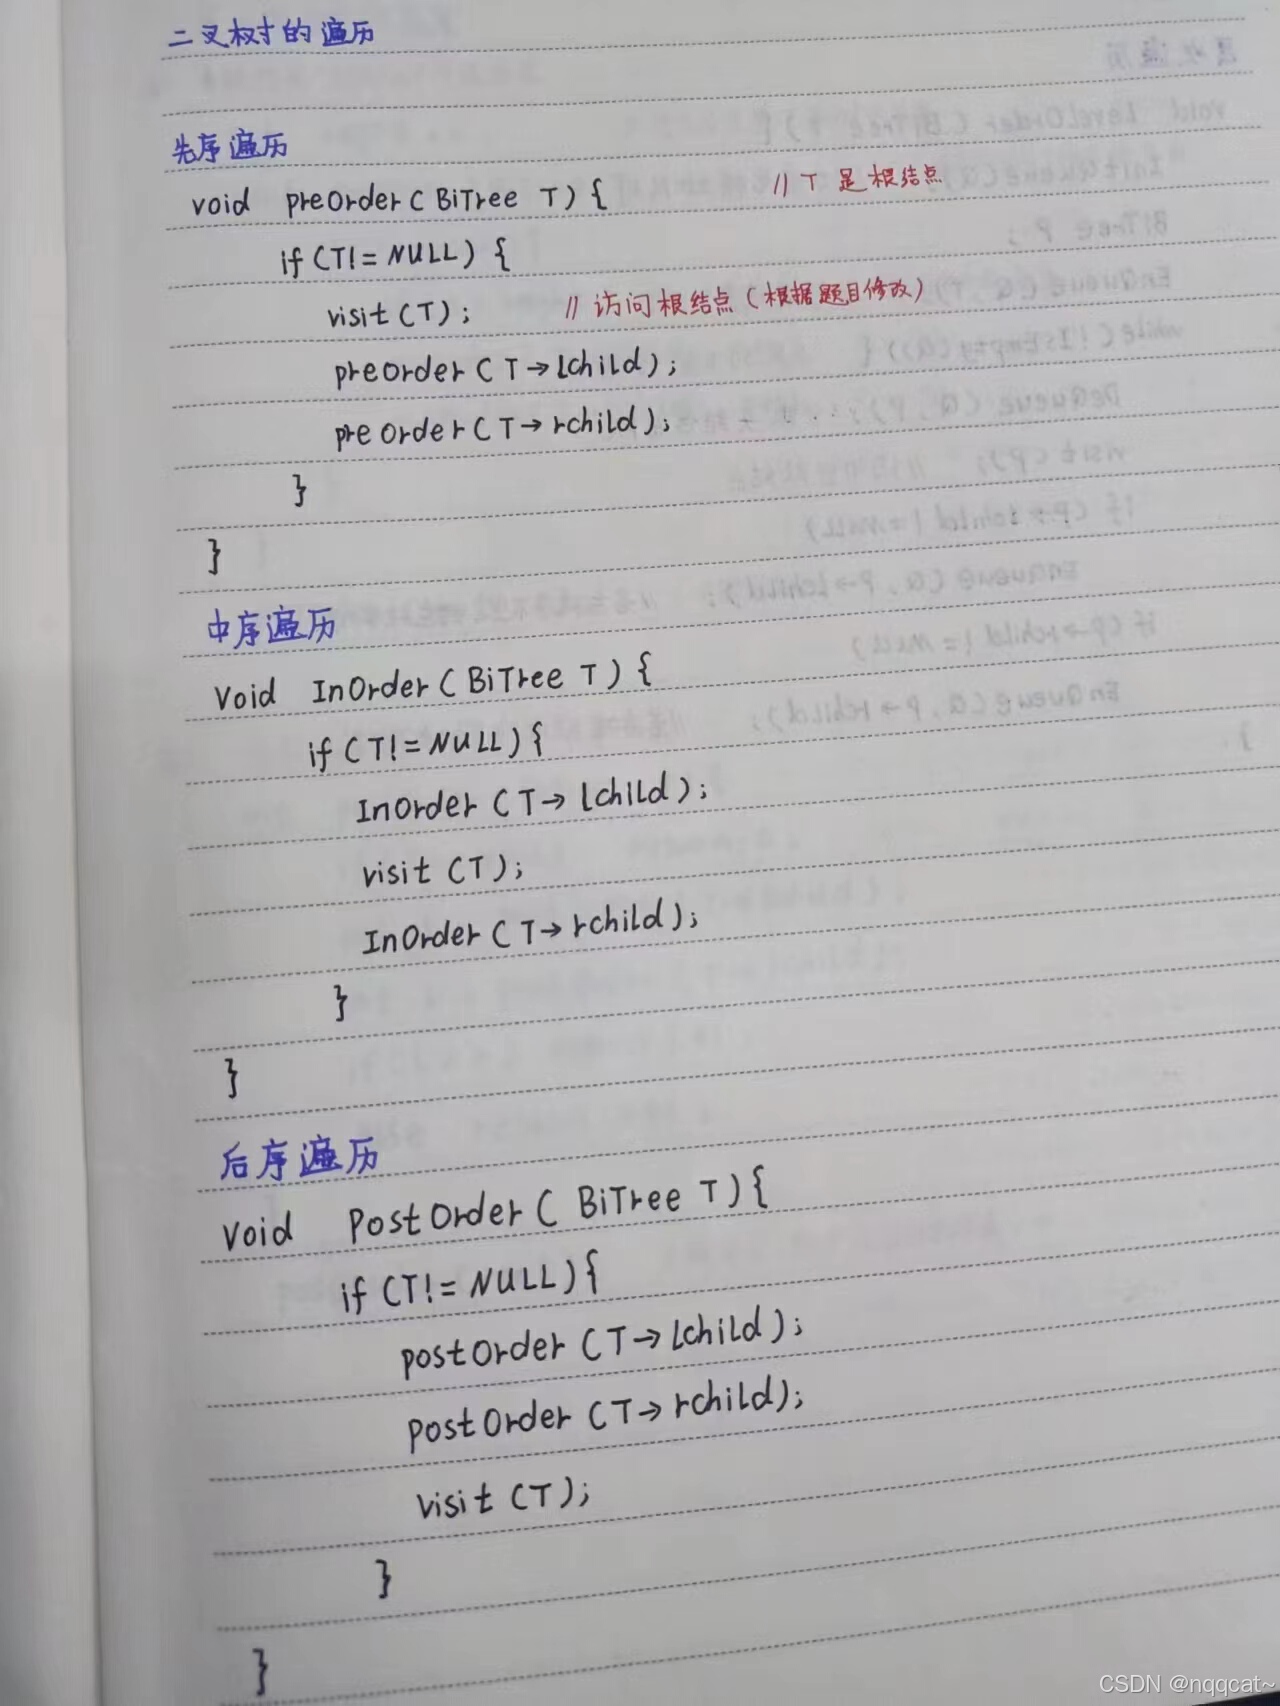 二叉树的遍历
先序遍历
void preOrder ( BiTree T ) { // T 是根结点
if (T != NULL) {
visit (T); // 访问根结点 (根据题目修改)
preOrder ( T → lchild );
preOrder ( T → rchild );
}
}
中序遍历
void InOrder ( BiTree T ) {
if (T != NULL) {
InOrder ( T → lchild );
visit (T);
InOrder ( T → rchild );
}
}
后序遍历
void PostOrder ( BiTree T ) {
if (T != NULL) {
postOrder ( T → lchild );
postOrder ( T → rchild );
visit (T);
}
}
CSDN @nqqcat~